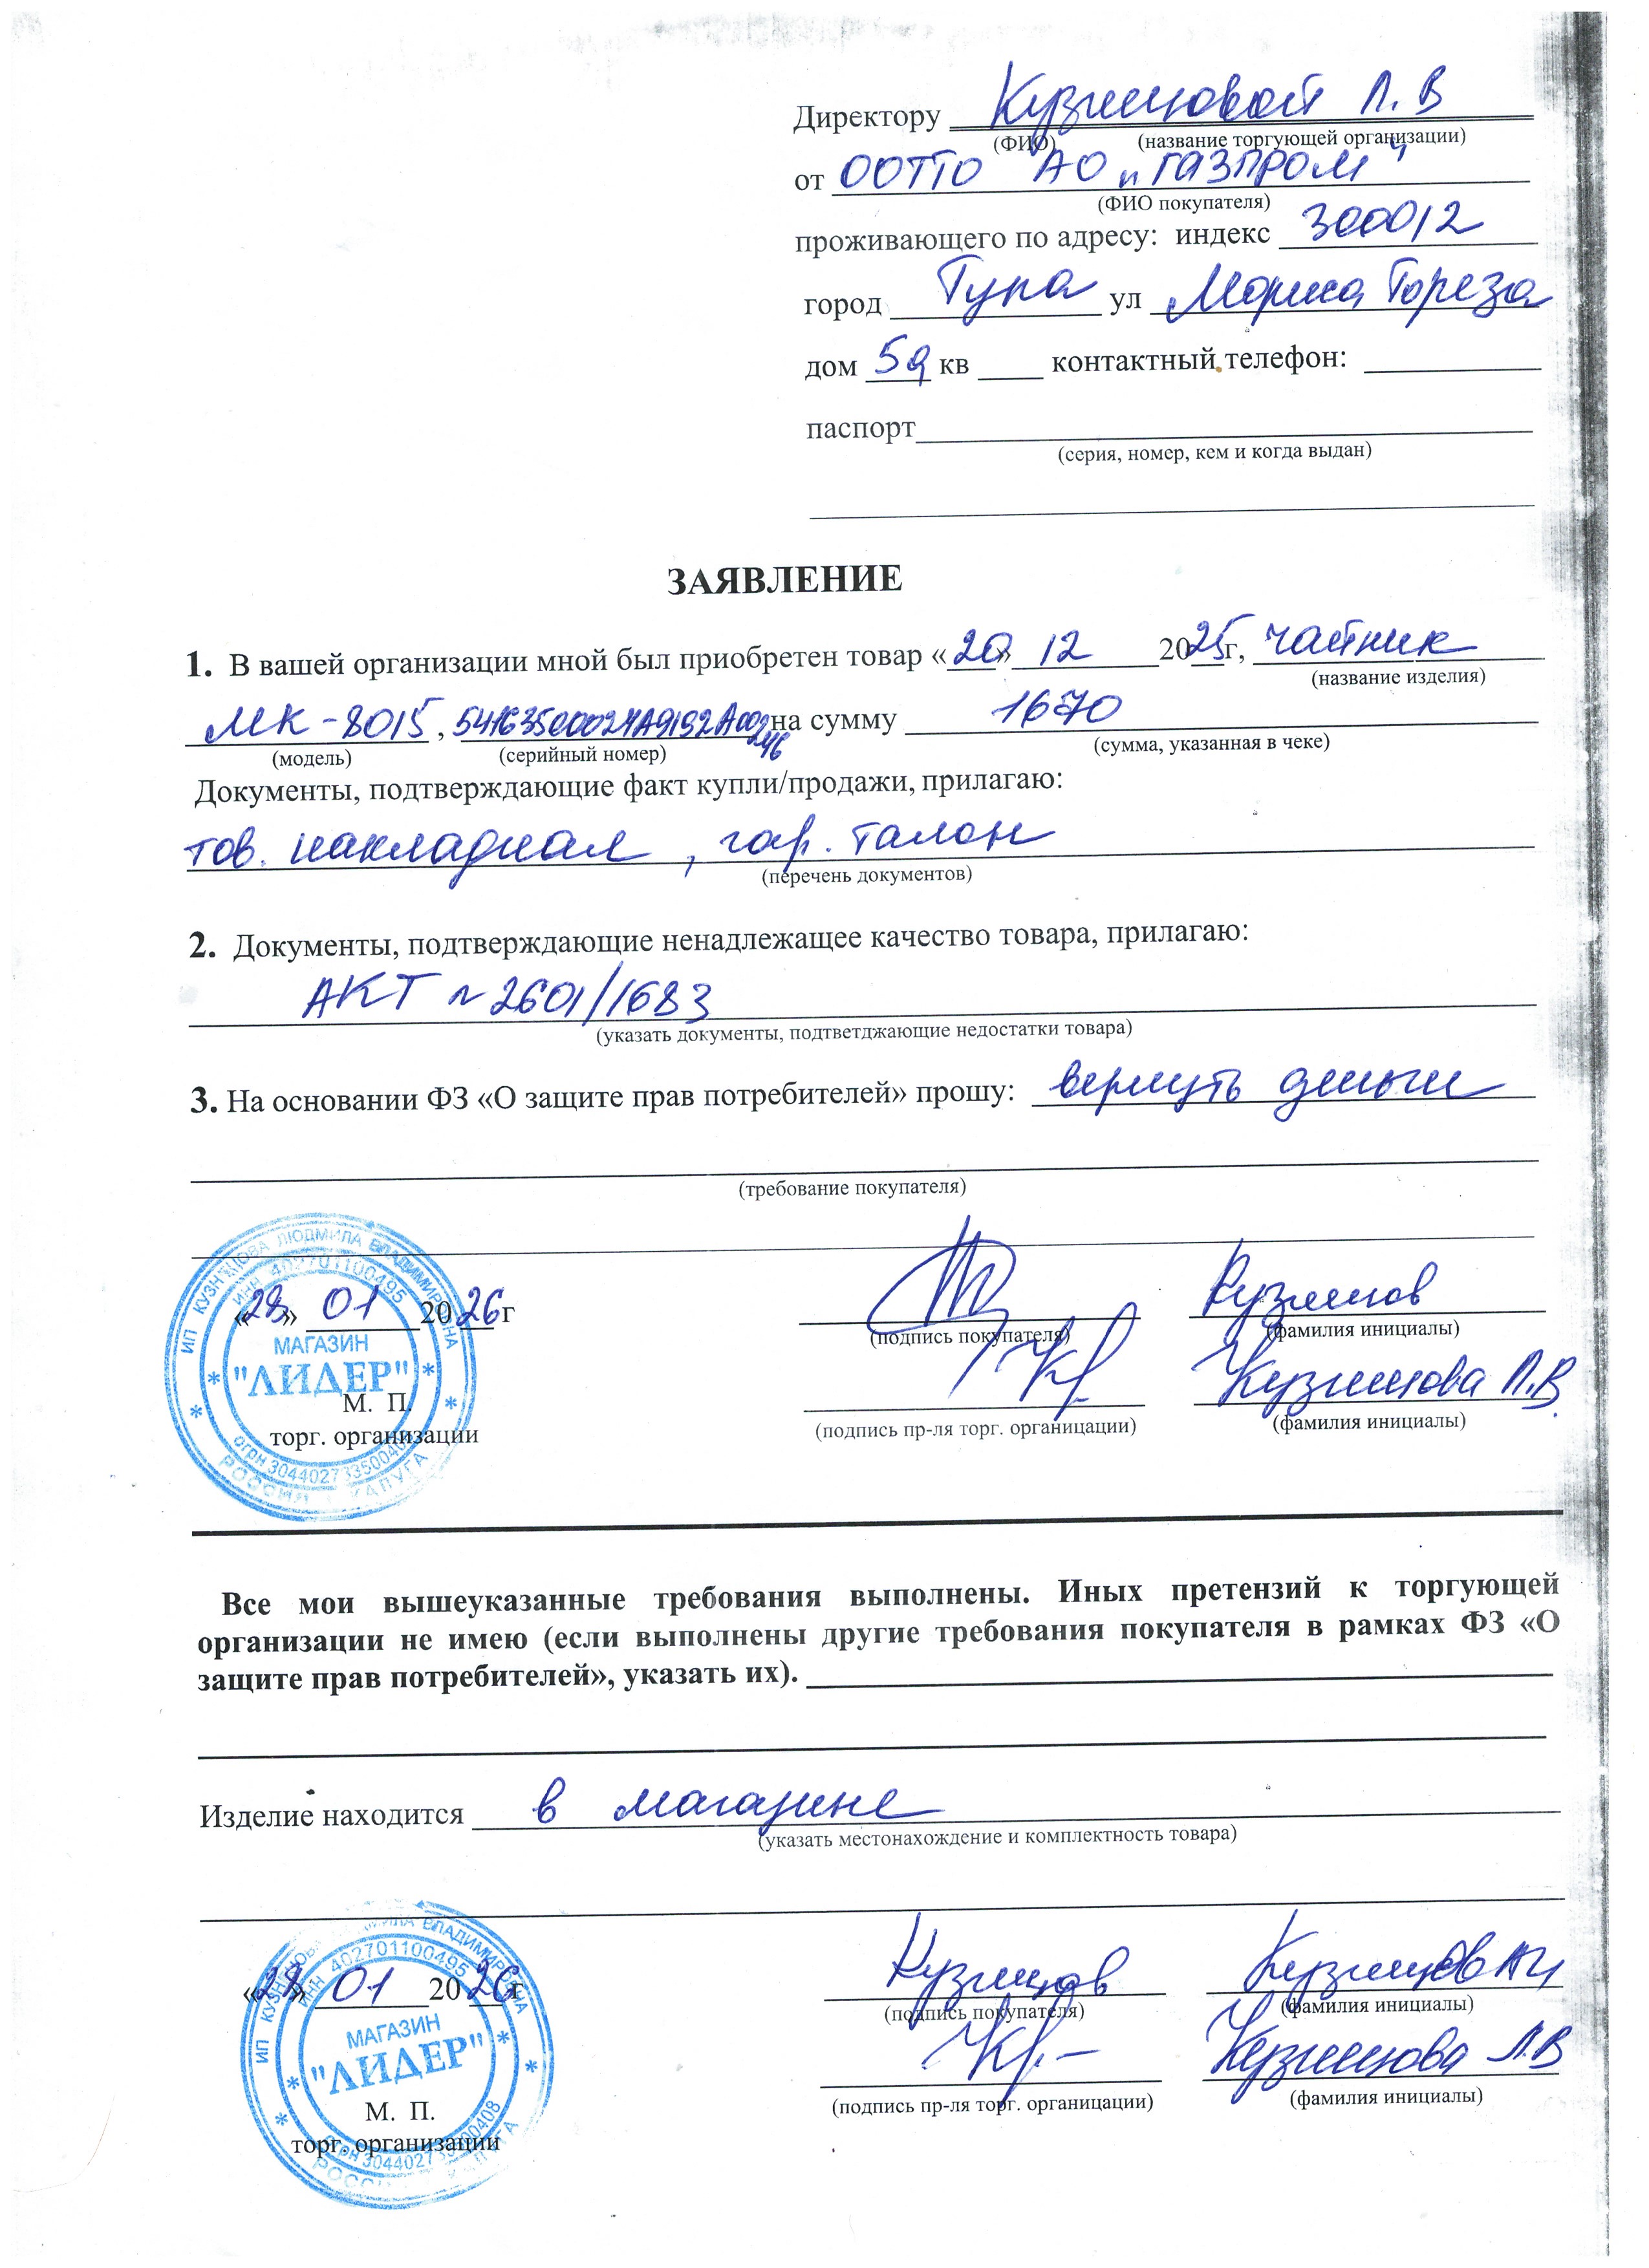 Директору Кузнецовой Л.В
(ФИО) (название торгующей организации)
от ООТТО АО "ГАЗПРОМ"
(ФИО покупателя)
проживающего по адресу: индекс 300012
город Тула ул Мориса Тореза
дом 5а кв ____ контактный телефон: ____
паспорт____
(серия, номер, кем и когда выдан)
ЗАЯВЛЕНИЕ
1. В вашей организации мной был приобретен товар «20» 12 2025г, чайник
(название изделия)
МК-8015, на сумму 1670
(модель) (серийный номер) (сумма, указанная в чеке)
Документы, подтверждающие факт купли/продажи, прилагаю:
тов. накладная, гар. талон
(перечень документов)
2. Документы, подтверждающие ненадлежащее качество товара, прилагаю:
АКТ № 2601/1683
(указать документы, подтветджающие недостатки товара)
3. На основании ФЗ «О защите прав потребителей» прошу: вернуть деньги
(требование покупателя)
ИП КУЗНЕЦОВА ЛЮДМИЛА ВЛАДИМИРОВНА
ИНН 402701100495
«29» 01 2026г Кузнецов
(подпись покупателя) (фамилия инициалы)
МАГАЗИН
"ЛИДЕР"
Кузнецова Л.В.
М. П.
(подпись пр-ля торг. органицации) (фамилия инициалы)
торг. организации
ОГРН 304402733500408
РОССИЯ г КАЛУГА
Все мои вышеуказанные требования выполнены. Иных претензий к торгующей
организации не имею (если выполнены другие требования покупателя в рамках ФЗ «О
защите прав потребителей», указать их).
Изделие находится в магазине
(указать местонахождение и комплектность товара)
ИП КУЗНЕЦОВА ЛЮДМИЛА ВЛАДИМИРОВНА
ИНН 402701100495
«29» 01 2026г Кузнецов Кузнецов
(подпись покупателя) (фамилия инициалы)
МАГАЗИН
"ЛИДЕР"
Кузнецова Л.В
М. П.
(подпись пр-ля торг. органицации) (фамилия инициалы)
торг. организации
ОГРН 304402733500408
РОССИЯ г КАЛУГА